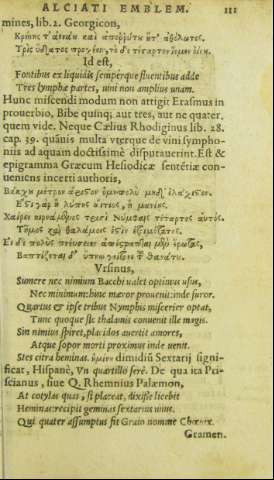 ALCIATI EMBLEM. 111
mines, lib. 2. Georgicon,
Κρήνης τ' ἀενάου καὶ ἀπορρύτου ἥτ' ἀθόλωτος,
Τρὶς ὕδατος προχέειν, τὸ δὲ τέταρτον ἱέμεν οἴνου.
Id est,
Fontibus ex liquidis semperque fluentibus adde
Tres lymphæ partes, uini non amplius unam.
Hunc miscendi modum non attigit Erasmus in
prouerbio, Bibe quinq; aut tres, aut ne quater.
quem vide. Neque Cælius Rhodiginus lib. 28.
cap. 29. quāuis multa vterque de vini sympho-
nia ad aquam doctissimè disputauerint. Est &
epigramma Græcum Hesiodicæ sentētiæ con-
ueniens incerti authoris,
Βάκχου μέτρον ἄριστον ὃ μὴ πολὺ μηδ' ἐλάχιστον.
Ἔστι γὰρ ἢ λύπης αἴτιος, ἢ μανίης.
Χαίρει κιρνάμενος τρισὶ Νύμφαις τέταρτος αὐτός.
Τῆμος καὶ θαλάμοις ἐστὶν ἑτοιμότατος.
Εἰ δὲ πολὺς πνεύσειεν ἀπέστραπται μὲν ἔρωτας,
Βαπτίζεται δ' ὕπνῳ γείτονι τοῦ θανάτου.
Vrsinus,
Sumere nec nimium Bacchi ualet optimus usus,
Nec minimum: hinc mæror prouenit: inde furor.
Quartus & ipse tribus Nymphis miscerier optat,
Tunc quoque sic thalamis conuenit ille magis.
Sin nimius spiret, placidos auertit amores,
Atque sopor morti proximus inde uenit.
Stes citra heminas. ἥμισυ dimidiū Sextarij signi-
ficat, Hispanè, Vn quartillo ferè. De qua ita Pri-
scianus, siue Q. Rhemnius Palæmon,
At cotylas quas, si placeat, dixisse licebit
Heminas: recipit geminas sextarius unus.
Qui quater assumptus fit Graio nomine Chœnix.
Gramen.